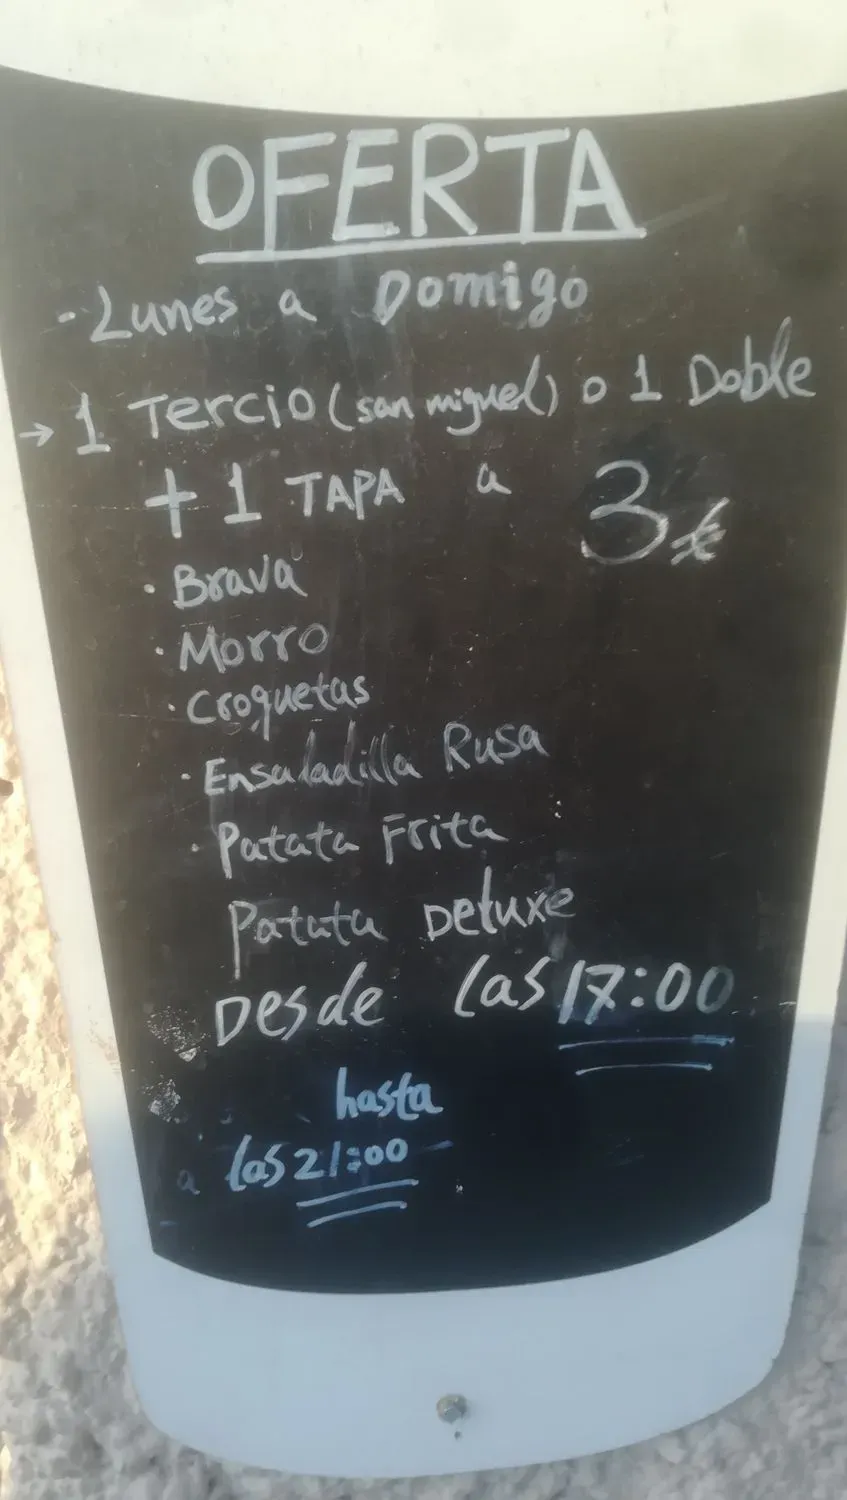 OFERTA
- Lunes a Domigo
→ 1 Tercio (san miguel) o 1 Doble
+ 1 TAPA a 3€
· Brava
· Morro
· Croquetas
· Ensaladilla Rusa
· Patata Frita
Patata Deluxe
Desde las 17:00
hasta
a las 21:00